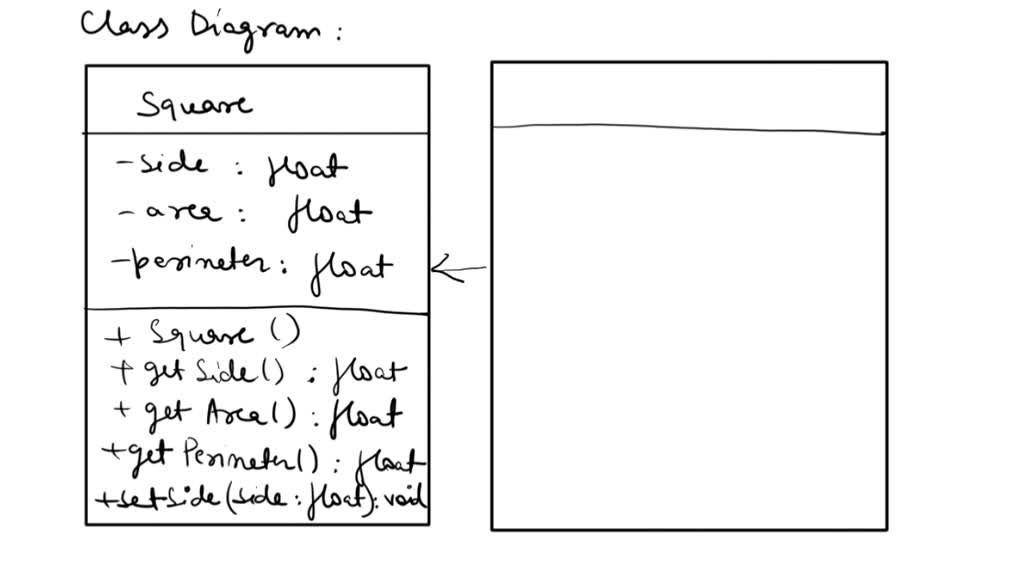 Class Diagram :
Square
- side : float
- area : float
- perimeter : float
+ Square ()
+ get Side() : float
+ get Area() : float
+ get Perimeter() : float
+ setSide (side : float) : void